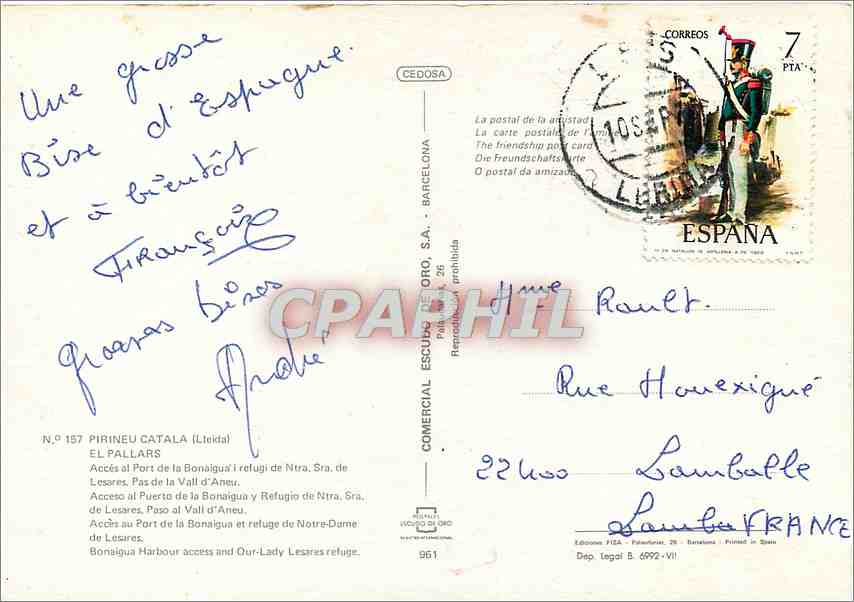 Une grosse
Bise d'Espagne.
et à bientôt
François
grosses bises
André
N.º 157 PIRINEU CATALA (Lleida)
EL PALLARS
Accés al Port de la Bonaigua i refugi de Ntra. Sra. de
Lesares, Pas de la Vall d'Aneu.
Acceso al Puerto de la Bonaigua y Refugio de Ntra. Sra.
de Lesares, Paso al Vall d'Aneu.
Accès au Port de la Bonaigua et refuge de Notre-Dame
de Lesares.
Bonaigua Harbour access and Our-Lady Lesares refuge.
CEDOSA
COMERCIAL ESCUDO DE ORO, S.A. - BARCELONA
Palaudarias, 26
Reproducción prohibida
POSTALES
ESCUDO DE ORO
961
La postal de la amistad
La carte postale de l'amitié
The friendship post card
Die Freundschaftskarte
O postal da amizade
CORREOS
7
PTA
ESPAÑA
F.N.M.T.
10 SEP
LERIDA
CPAPHIL
Mme Rault.
Rue Houexigué
22400 Lamballe
Lamba FRANCE
Ediciones FISA - Palaudarias, 26 - Barcelona - Printed in Spain
Dep. Legal B. 6992-VI